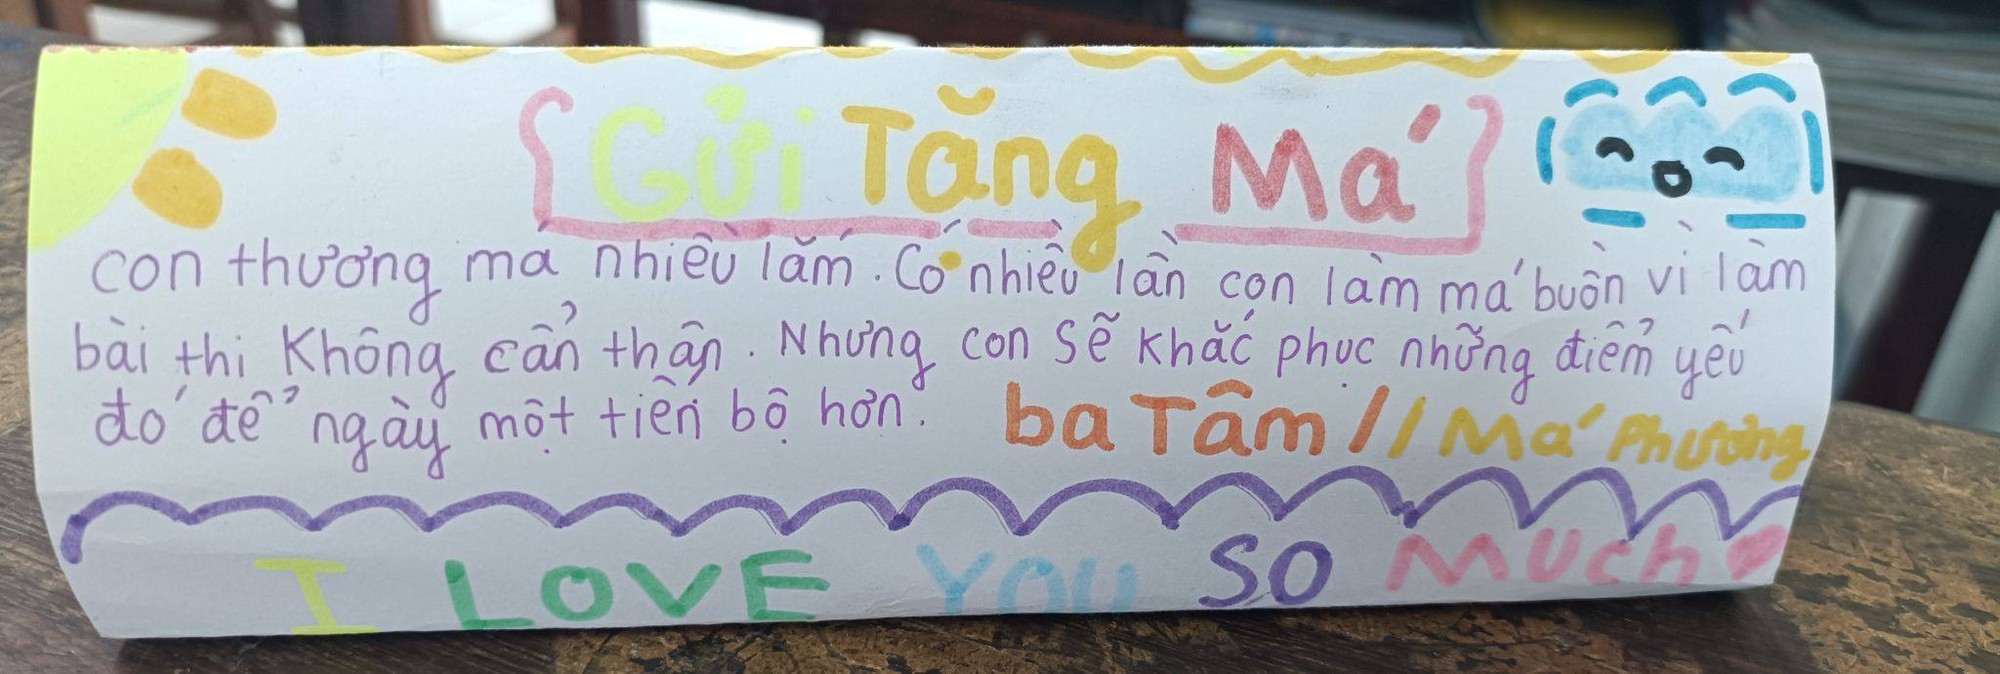 Gửi Tăng Má
con thương má nhiều lắm. Có nhiều lần con làm má buồn vì làm
bài thi Không cẩn thận. Nhưng con sẽ khắc phục những điểm yếu
đó để ngày một tiến bộ hơn.
ba Tâm // Má Phương
I LOVE YOU SO MUCh